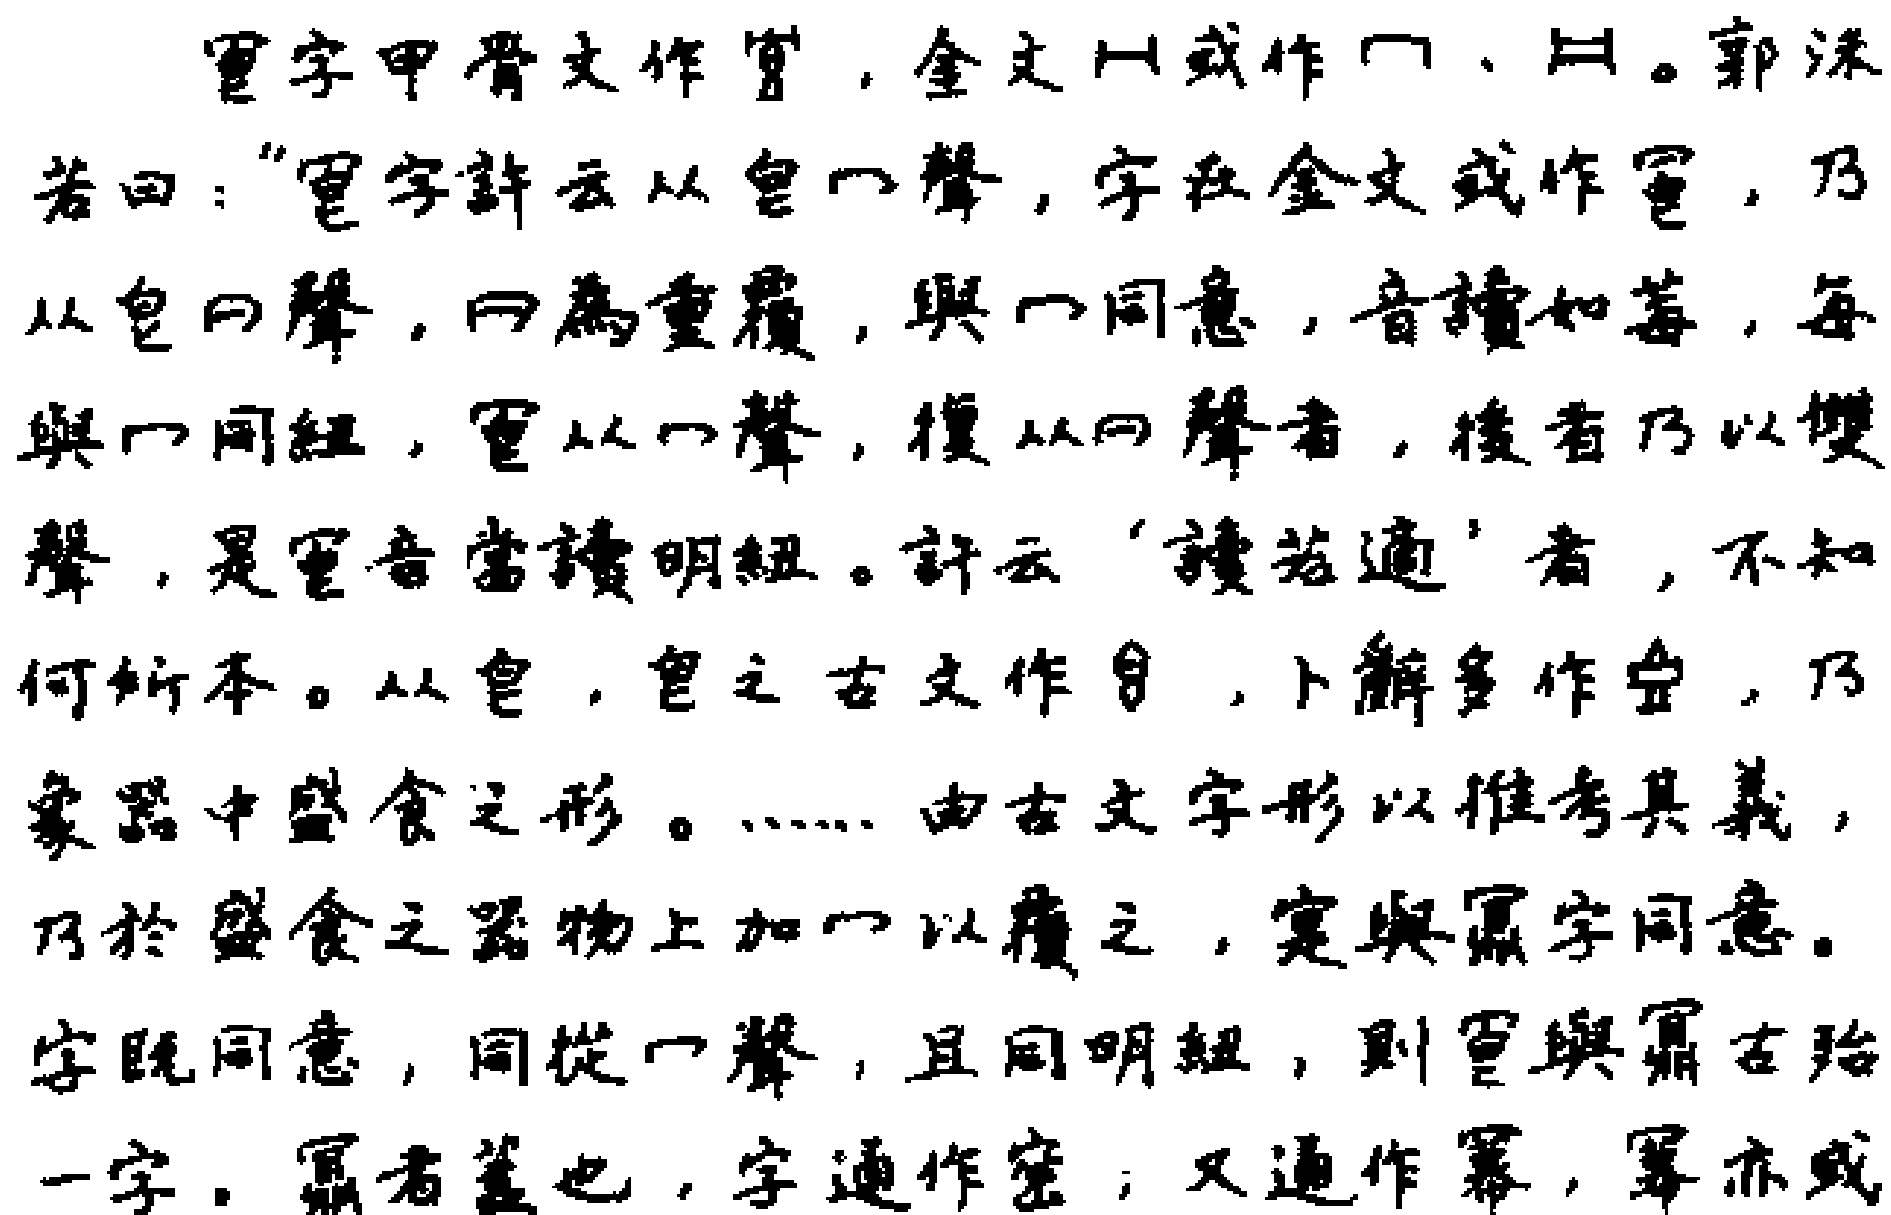 冟字甲骨文作，金文冖或作冖、。郭沫
若曰：“冟字許云从皀冖聲，字在金文或作冟，乃
从皀冃聲，冃為重覆，與冖同意，音讀如莓，每
與冖同紐，冟从冖聲，復从冃聲者，後者乃以雙
聲，是冟音當讀明紐。許云‘讀若適’者，不知
何所本。从皀，皀之古文作，卜辭多作，乃
象器中盛食之形。……由古文字形以推考其義，
乃於盛食之器物上加冖以覆之，寔與鼏字同意。
字既同意，同從冖聲，且同明紐，則冟與鼏古殆
一字。鼏者蓋也，字通作密；又通作冪，冪亦或